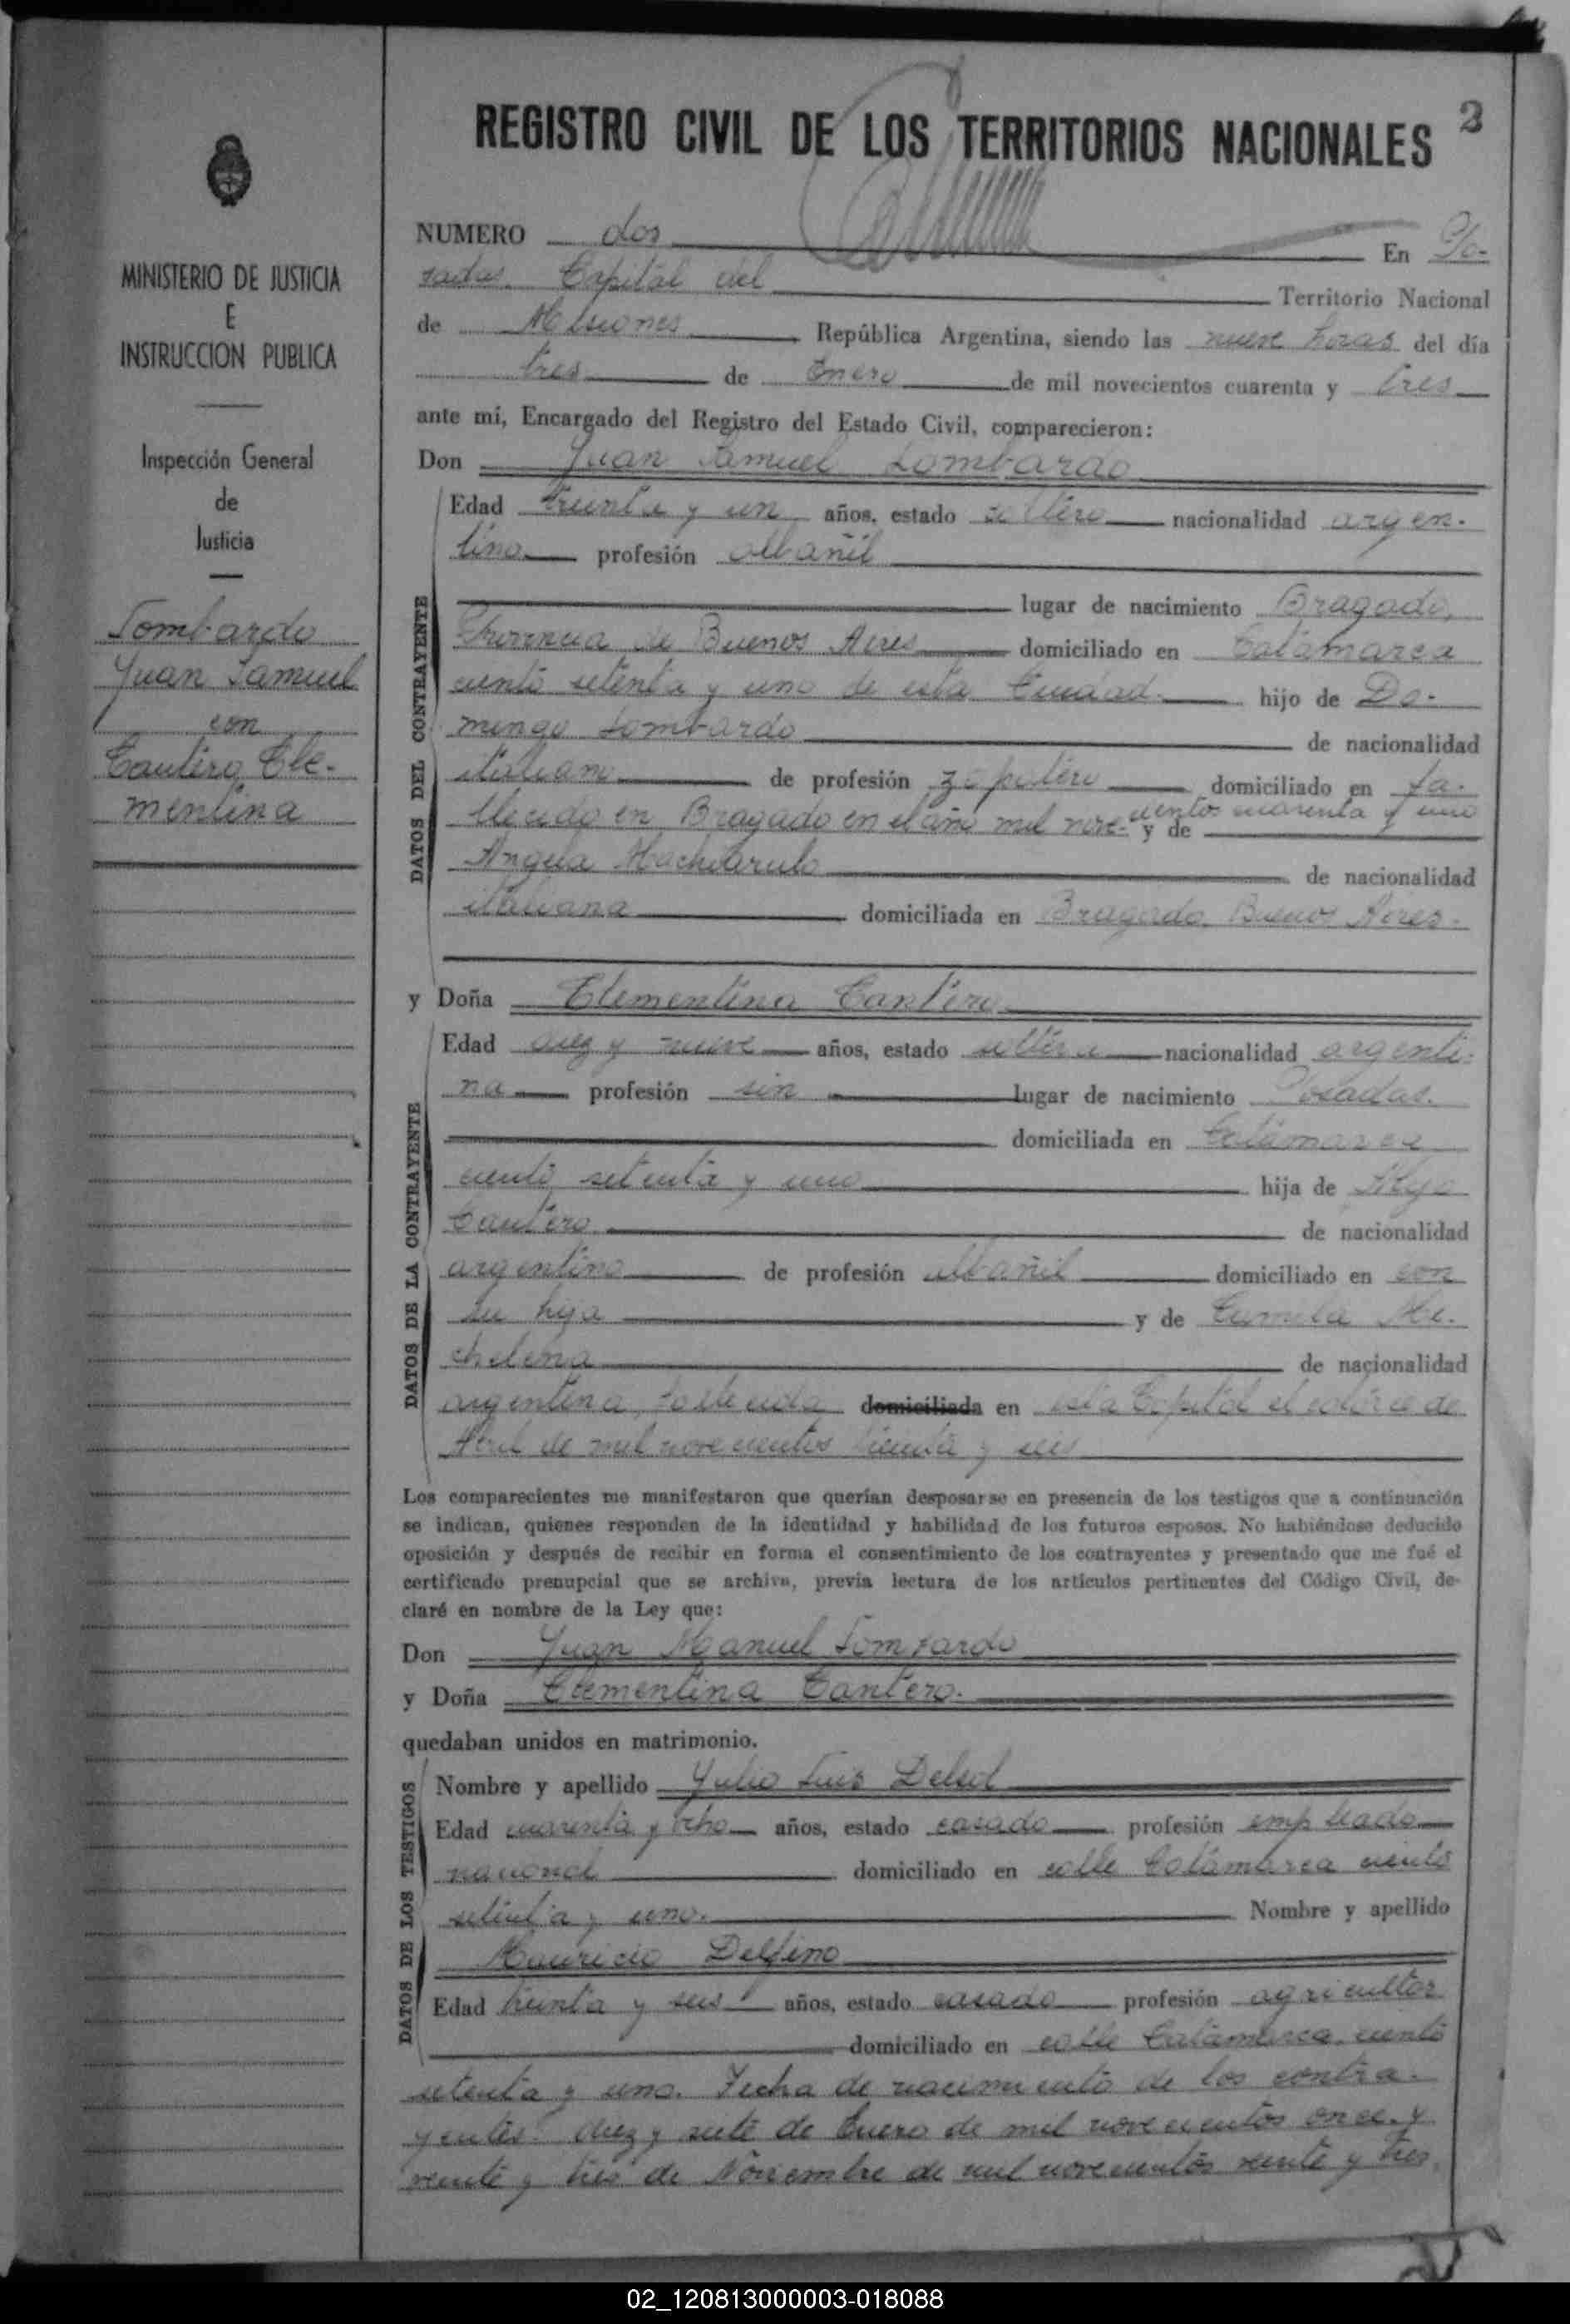 REGISTRO CIVIL DE LOS TERRITORIOS NACIONALES 2
MINISTERIO DE JUSTICIA
E
INSTRUCCION PUBLICA
Inspección General
de
Justicia
Lombardo
Juan Samuel
con
Cantero Cle-
mentina
NUMERO dos En Po-
sadas. Capital del Territorio Nacional
de Misiones República Argentina, siendo las nueve horas del día
tres de Enero de mil novecientos cuarenta y tres
ante mí, Encargado del Registro del Estado Civil, comparecieron:
Don Juan Samuel Lombardo
DATOS DEL CONTRAYENTE
Edad treinta y un años, estado soltero nacionalidad argen-
tino profesión albañil
lugar de nacimiento Bragado,
Provincia de Buenos Aires domiciliado en Catamarca
ciento setenta y uno de esta Ciudad. hijo de Do-
mingo Lombardo de nacionalidad
italiano de profesión zapatero domiciliado en fa-
llecido en Bragado en el año mil nove- cientos cuarenta y uno y de
Angela de nacionalidad
italiana domiciliada en Bragado. Buenos Aires.
y Doña Clementina Cantero
DATOS DE LA CONTRAYENTE
Edad diez y nueve años, estado soltera nacionalidad argenti-
na profesión sin lugar de nacimiento Posadas.
domiciliada en Catamarca
ciento setenta y uno hija de
Cantero de nacionalidad
argentino de profesión albañil domiciliado en con
su hija y de Camila Mi-
chelena de nacionalidad
argentina, fallecida domiciliada en esta Capital el catorce de
Abril de mil novecientos treinta y seis
Los comparecientes me manifestaron que querían desposarse en presencia de los testigos que a continuación
se indican, quienes responden de la identidad y habilidad de los futuros esposos. No habiéndose deducido
oposición y después de recibir en forma el consentimiento de los contrayentes y presentado que me fué el
certificado prenupcial que se archiva, previa lectura de los artículos pertinentes del Código Civil, de-
claré en nombre de la Ley que:
Don Juan Manuel Lombardo
y Doña Clementina Cantero.
quedaban unidos en matrimonio.
DATOS DE LOS TESTIGOS
Nombre y apellido Julio Luis Delsol
Edad cuarenta y ocho años, estado casado profesión empleado
nacional domiciliado en calle Catamarca ciento
setenta y uno. Nombre y apellido
Mauricio Delfino
Edad treinta y seis años, estado casado profesión agricultor
domiciliado en calle Catamarca ciento
setenta y uno. Fecha de nacimiento de los contra-
yentes: diez y siete de Enero de mil novecientos once. y
veinte y tres de Noviembre de mil novecientos veinte y tres.
02_120813000003-018088